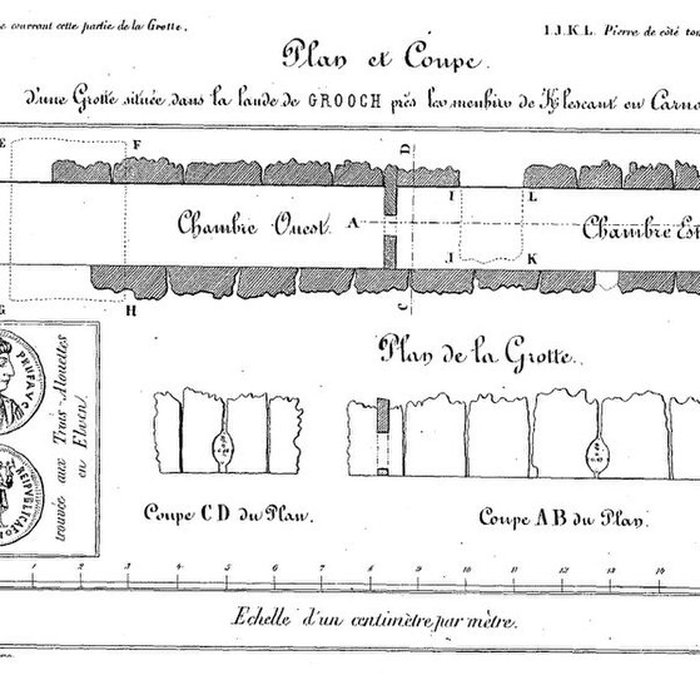 couvrant cette partie de la Grotte.
I.J.K.L. Pierre de côté
Plan et Coupe.
d'une Grotte située dans la lande de GROOCH près les menhirs de Klescant en
E
F
D
I
L
Chambre Ouest.
A
Chambre Est
J
K
G
H
C
Plan de la Grotte.
PRUFAVC
REIPVBLICAE
trouvée aux Trois-Alouettes
en Elven
Coupe C D du Plan.
Coupe A B du Plan.
1 2 3 4 5 6 7 8 9 10 11 12 13 14
Echelle d'un centimètre par mètre.